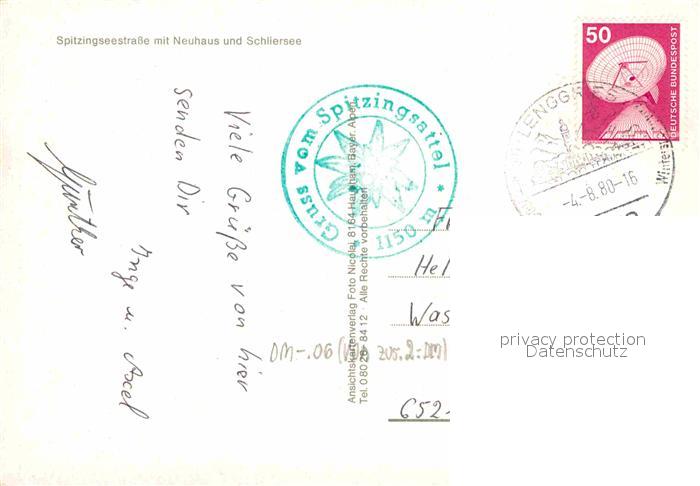 Spitzingseestraße mit Neuhaus und Schliersee
Viele Grüße von hier
senden Dir
Inge u. Axel
Günther
Gruss vom Spitzingsattel
* 1150 m *
Ansichtskartenverlag Foto Nicolai, 8164 Hausham, Bayer. Alpen
Tel. 08026-8412 Alle Rechte vorbehalten
50
DEUTSCHE BUNDESPOST
LENGG
Winters
-4.-8.80-16
Hel
Was
652-
DM-.06 ( zus. 2.-DM)
privacy protection
Datenschutz